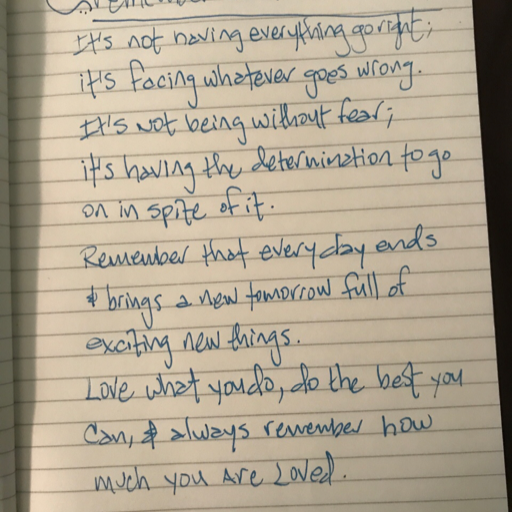 It's not having everything go right;
it's facing whatever goes wrong.
It's not being without fear;
it's having the determination to go
on in spite of it.
Remember that every day ends
& brings a new tomorrow full of
exciting new things.
Love what you do, do the best you
can, & always remember how
much you are Loved.